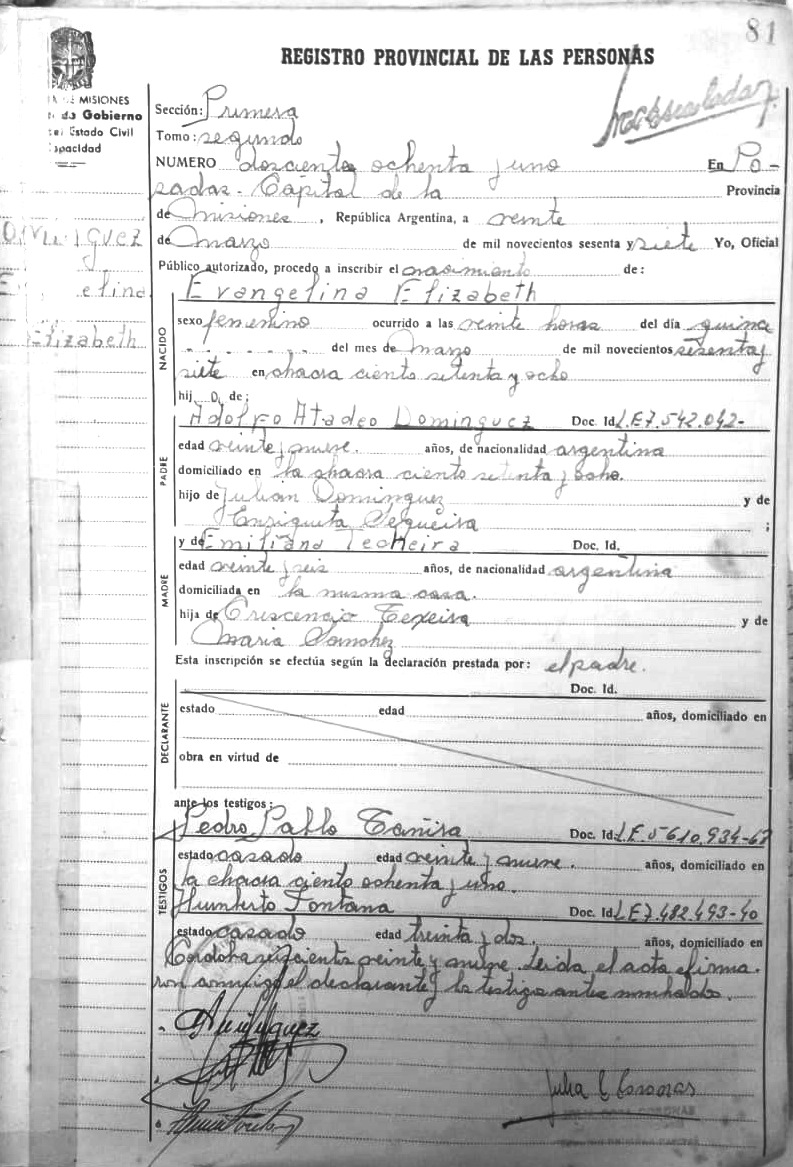 81
REGISTRO PROVINCIAL DE LAS PERSONAS
DE MISIONES
Gobierno
Estado Civil
apacidad
Sección: Primera
Tomo: segundo
NUMERO doscientos ochenta y uno En Po-
sadas - Capital de la Provincia
de Misiones, República Argentina, a veinte
de Marzo de mil novecientos sesenta y siete Yo, Oficial
Público autorizado, procedo a inscribir el nacimiento de:
Evangelina Elizabeth
NACIDO
sexo femenino ocurrido a las veinte horas del día quince
del mes de Marzo de mil novecientos sesenta y
siete en chacra ciento setenta y ocho
hij a de:
PADRE
Adolfo Atadeo Dominguez Doc. Id. L.E 7.542.042-
edad veinte y nueve. años, de nacionalidad argentina
domiciliado en la chacra ciento setenta y ocho.
hijo de Julian Dominguez y de
Enriqueta Sequeira ;
MADRE
y de Emiliana Techeira Doc. Id.
edad veinte y seis años, de nacionalidad argentina
domiciliada en la misma casa.
hija de Crescencio Texeira y de
Maria Sanchez
Esta inscripción se efectúa según la declaración prestada por: el padre.
DECLARANTE
Doc. Id.
estado edad años, domiciliado en
obra en virtud de
ante los testigos:
TESTIGOS
Pedro Pablo Doc. Id. L.E. 5610.934-67
estado casado edad veinte y nueve. años, domiciliado en
la chacra ciento ochenta y uno.
Humberto Fontana Doc. Id. L.E 7.482.493-40
estado casado edad treinta y dos, años, domiciliado en
Cordoba seiscientos veinte y nueve. Leida el acta firma-
ron conmigo el declarante y los testigos antes nombrados.
Julia C Coronas